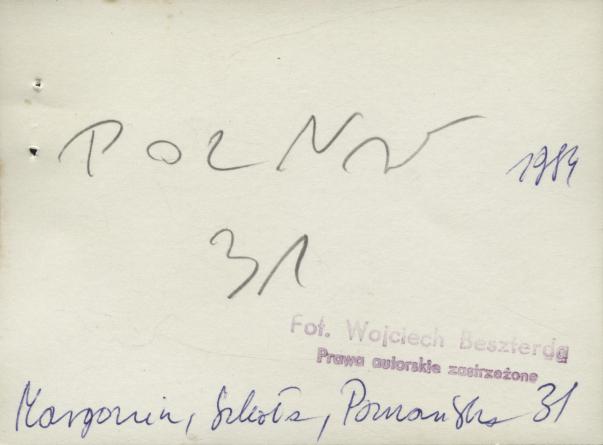 POZN
1984
31
Fot. Wojciech Beszterda
Prawa autorskie zastrzeżone
Margonin, Szkoła, Poznańska 31